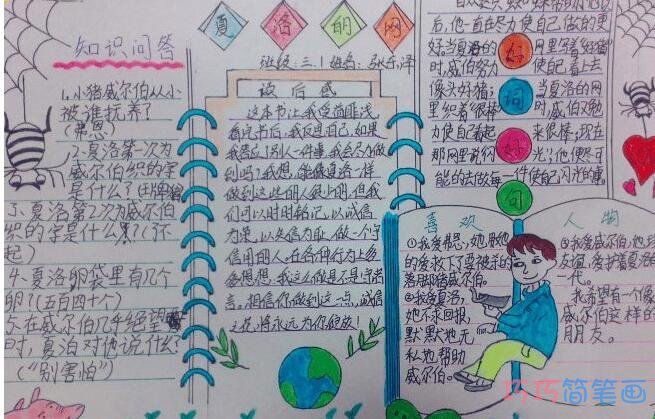 夏洛的网
班级:三.1 姓名:张乐泽
知识问答
1.小猪威尔伯从小
被谁抚养了
(弗恩)
2.夏洛第一次为
威尔伯织的字
是什么?(王牌猪)
3.夏洛第2次为威尔伯
织的字是什么?(了不
起)
4.夏洛卵袋里有几个
卵?(五百四十个)
5.在威尔伯几乎绝望
时,夏洛对他说什么?
("别害怕")
读后感
这本书让我受益匪浅
看完书后,我反思自己,如果
我答应别人一件事,我会尽力做
到吗?我想,能像夏洛一样
做到这些的人很少,但我
们可以时时铭记,以诚信
为荣,以失信为耻,做一个守
信用的人,在各种行为上多
多想想,我这么做是不是守诺
言。相信你做到这一点,诚信
之花将永远为你绽放!
好词好句
后,他一直在尽力使自己做的更
好当夏洛的网里写着经猪
时,威伯努力使自己看上去
像头好猪;当夏洛的网
里织着"很棒"时,威伯又勉
力使自己看起来很棒;现在
那网里说的光,他便尽可
能的去做每一件使自己闪光的事。
喜欢
①我喜弗恩,她用她
的爱救了要被杀的
落脚猪威尔伯。
②我爱夏洛,
她不求回报,
默默地无
私地帮助
威尔伯。
人物
③我爱威尔伯,他对
友谊,爱护着夏洛的
一代。
我希望有一个像
威尔伯这样的
朋友。
巧巧简笔画